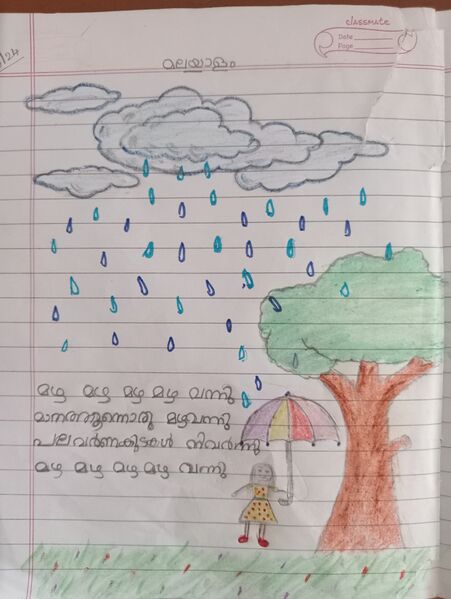 classmate
Date
Page
/24
മലയാളം
മഴ മഴ മഴ മഴ വന്നു
മാനത്തുന്നൊരു മഴവന്നു
പലവർണക്കുടകൾ നിവർന്നു
മഴ മഴ മഴ മഴ വന്നു